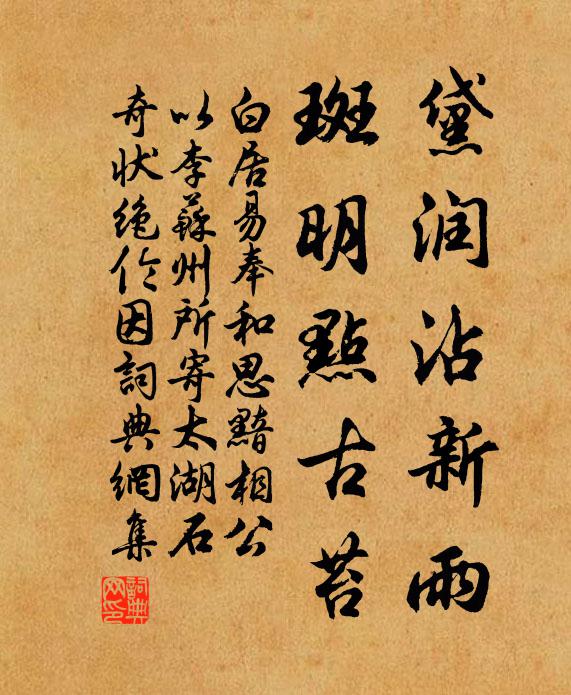 黛润沾新雨
斑明點古苔
白居易奉和思黯相公
以李蘇州所寄太湖石
奇状絶伦因詞典網集
詞典网印